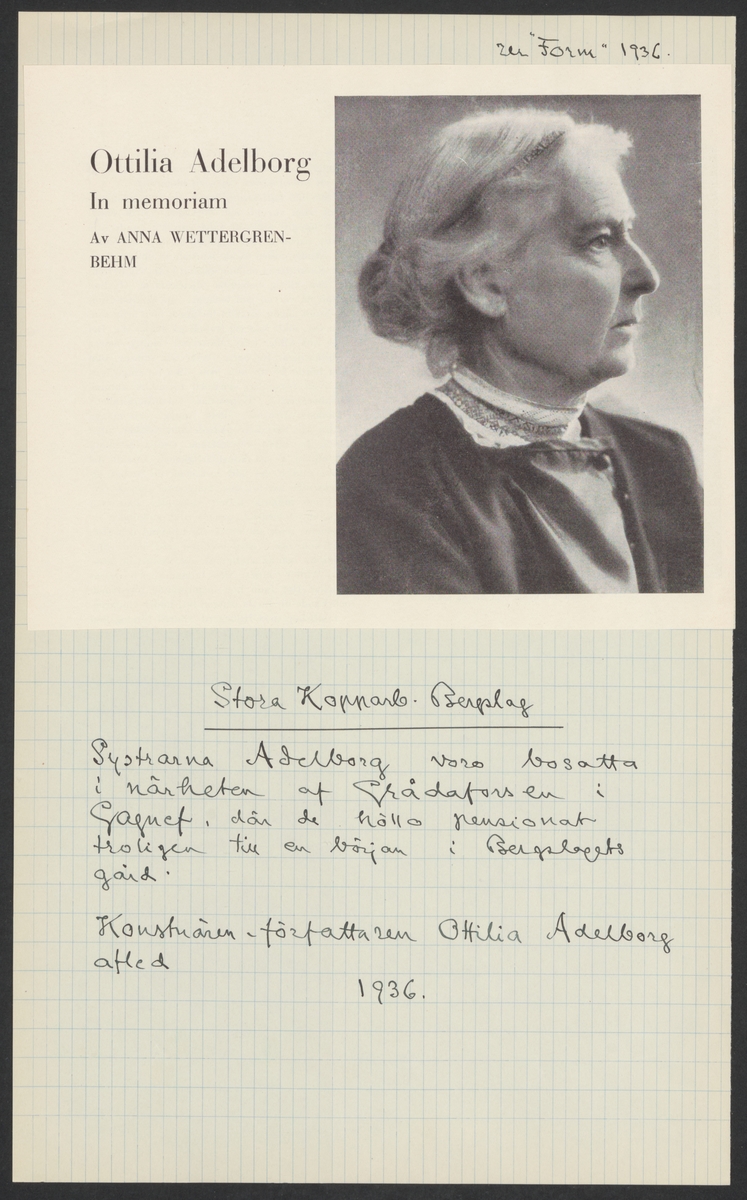 ur "Form" 1936.
Ottilia Adelborg
In memoriam
Av ANNA WETTERGREN-
BEHM
Stora Kopparb. Bergslag
Systrarna Adelborg voro bosatta
i närheten af Grådaforsen i
Gagnef, där de höllo pensionat
troligen till en början i Bergslagets
gård.
Konstnären-författaren Ottilia Adelborg
afled
1936.